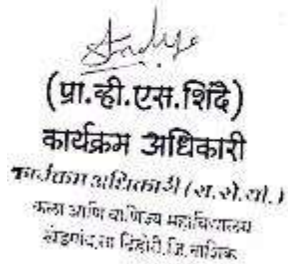 (प्रा.व्ही.एस.शिंदे)
कार्यक्रम अधिकारी
कार्यक्रम अधिकारी (रा.से.यो.)
कला आणि वाणिज्य महाविद्यालय
ता दिंडोरी.जि.नाशिक